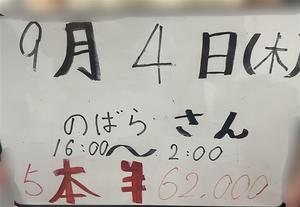 9月4日(木)
のばら さん
16:00〜2:00
5本 ¥62.000